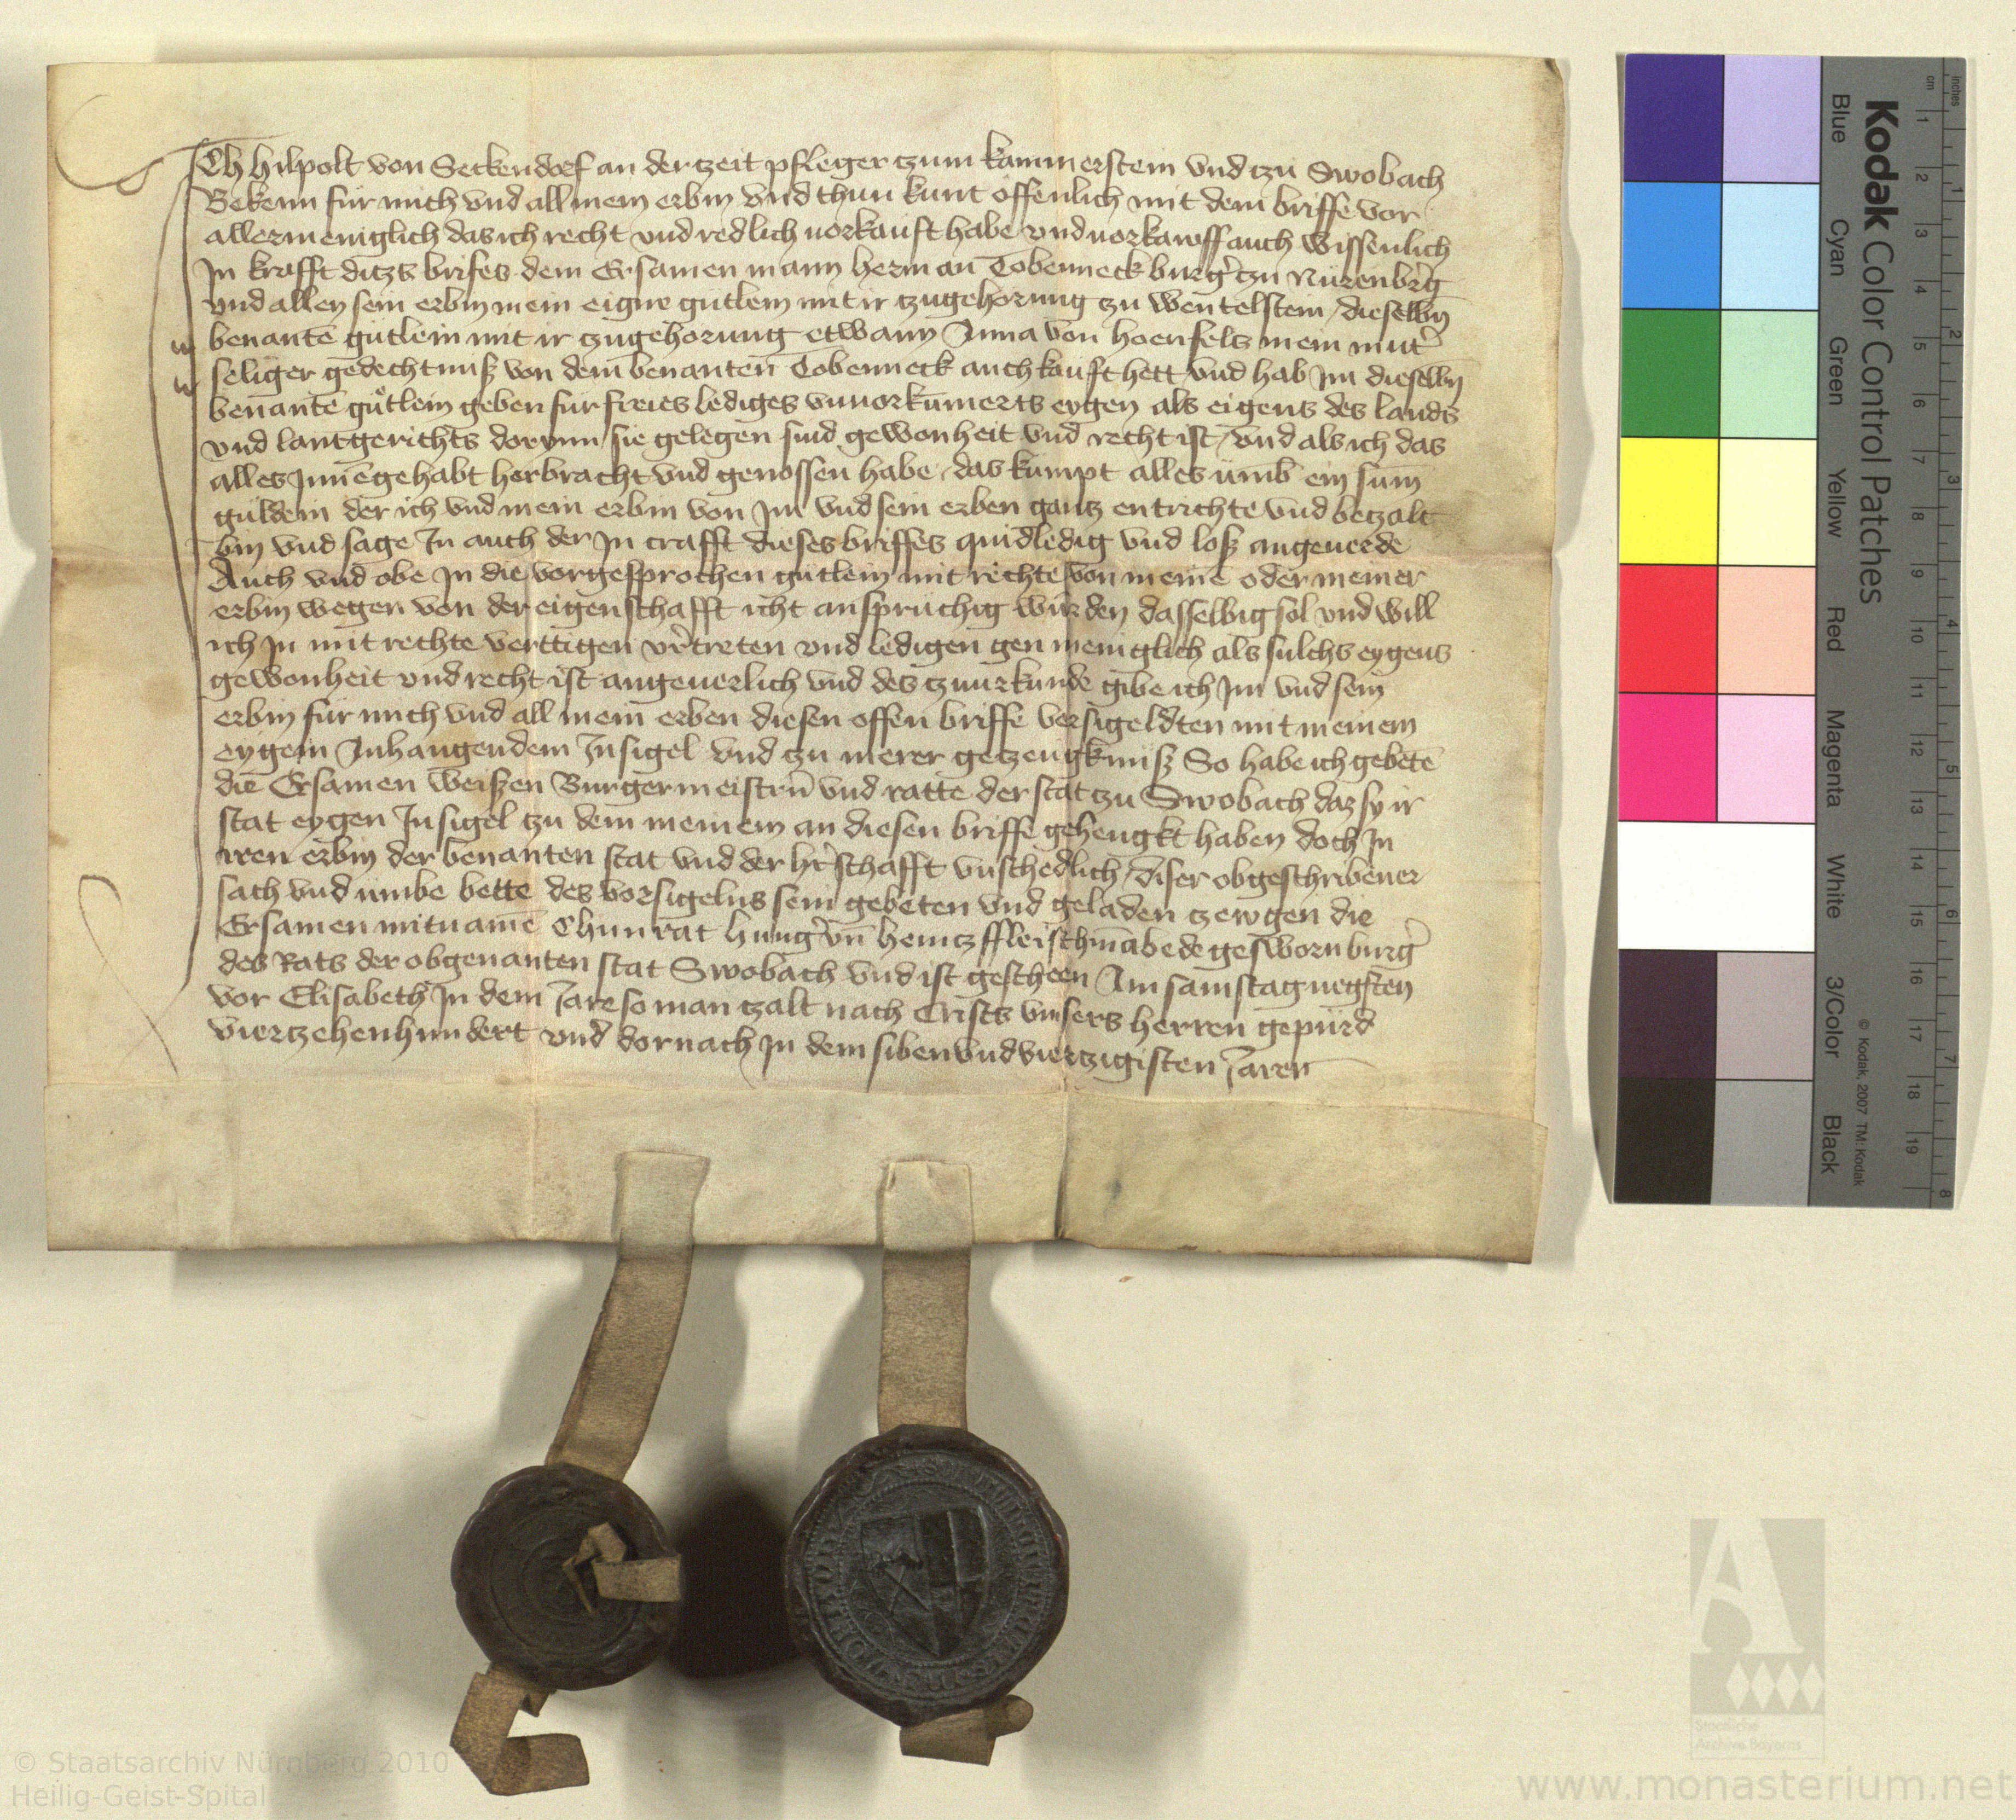 Ich hilpolt von Seckendorf an der zeit pfleger czum kammerstein vnd czu Swobach
Bekenn fur mich vnd all mein erbin vnd thun kunt offenlich mit dem briffe vor
allermeniglich das ich recht vnd redlich uorkauft habe vnd uorkawff auch wissenlich
In krafft ditzs brifes dem Ersamen mann herman Tobenneck burg̉ czu Nurenbr̉g
vnd allen sein erbin mein eigne gutlein mit ir czugehorung zu wentelstein / dieselbn̄
benantē gutlein mit ir czugehorung etwann Anna von hoenfels mein mut̉
seliger gedechtniß von dem benanten Tobenneck auch kauft hett vnd hab Im dieselbn̄
benantē gutlein geben fur freies lediges vnuorkumerts eygen als eigens des lands
vnd lantgerichts dorynn sie gelegen sind gewonheit vnd recht ist / vnd als ich das
alles Innē gehabt herbracht vnd genossen habe / das kumpt alles umb ein sum̄
guldein der ich vnd mein erbin von Im vnd sein erben gantz entrichte vnd betzalt
bin vnd sage In auch der In crafft dieses briffes quid ledig vnd loß angeuerde
Auch vnd obe In die vorgesprochen gutlein mit rechte von meinē oder meiner
erbin wegen von der eigenschafft icht anspruchig wurden dasselbig sol vnd will
ich In mit rechte verttigen vr̉treten vnd ledigen gen meniglich als sulchs eygens
gewonheit vnd recht ist angeuerlich vnd des czuurkunde gibe ich Im vnd sein
erbin fur mich vnd all mein erben diesen offen briffe versigeldten mit meinem
eygem Anhangendem Insigel vnd czu merer getzeugkniß So habe ich gebetē
die Ersamen weißen Burgermeistrn̄ vnd ratte der stat zu Swobach daz sy ir
stat eygen Insigel czu dem meinem an diesen briffe gehengkt haben doch In
iren erbin der benanten stat vnd der hr̉schafft vnschedlich / diser obgeschribener
sach vnd umbe bette des vorsigelns sein gebeten vnd geladen czewgen die
Ersamen mit namē Chunrat hung̉ vn̄ heincz ffleischmā bede gesworn burg̉
des Rats der obgenanten stat Swobach vnd ist gescheen Am samstag negsten
vor Elisabeth In dem Jare so man czalt nach Cristi vnsers herren gepurd
vierczehenhundert vnd dornach In dem siben vnd vierczigisten Jaren
Kodak Color Control Patches
Blue
Cyan
Green
Yellow
Red
Magenta
White
3/Color
Black
© Kodak, 2007 TM: Kodak
inches
cm
1 2 3 4 5 6 7 8 9 10 11 12 13 14 15 16 17 18 19
1 2 3 4 5 6 7 8
Staatliche
Archive Bayerns
© Staatsarchiv Nürnberg 2010
Heilig-Geist-Spital
www.monasterium.net